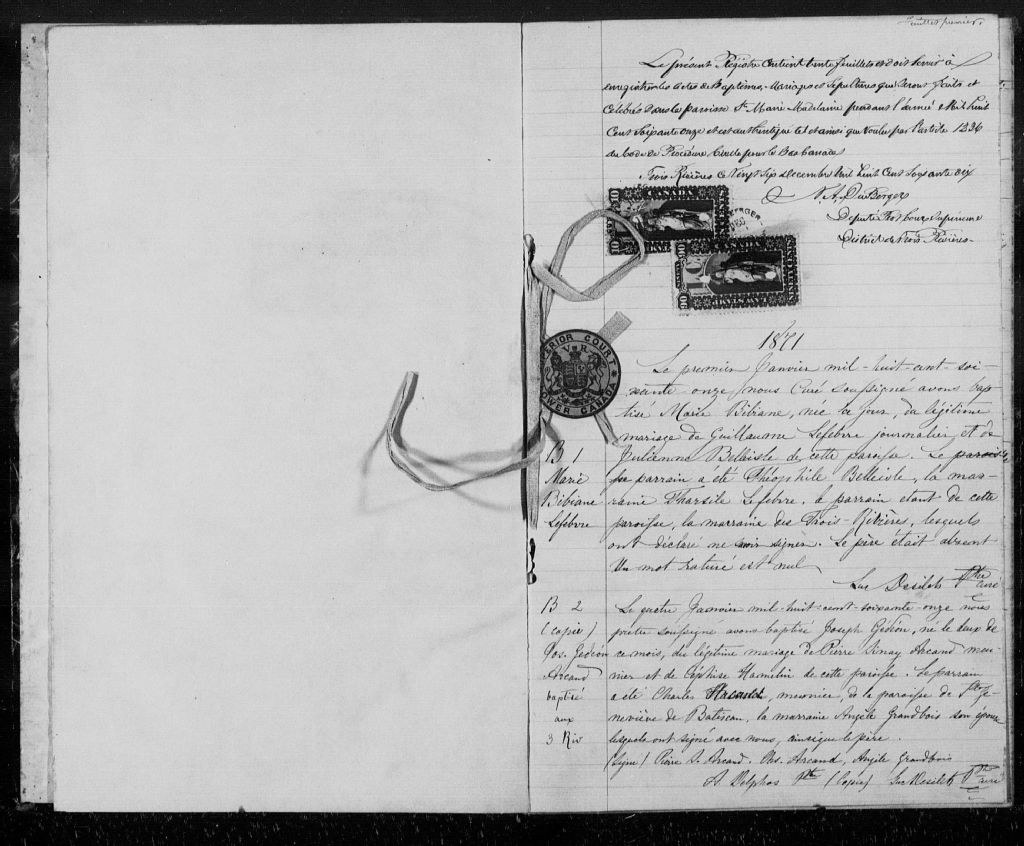 Feuillet premier.
Le présent Régistre contient trente feuillets et doit servir à
enregistrer les actes de Baptêmes, Mariages et Sépultures qui seront faits et
célébrés dans la paroisse Ste Marie Madelaine pendant l'année Mil huit
Cent Soixante onze et est authentiqué tel et ainsi que voulu par l'article 1236
du Code de Procédure Civile pour le Bas Canada
Trois Rivières ce Vingt Sep decembre Mil huit Cent Soixante dix
CANADA
CANADA
90
V. A. DuBerger
Député Prot Cour Supérieure
District de Trois Rivières
1871
SUPERIOR COURT
V R
LOWER CANADA
Le premier Janvier mil-huit-cent-soi-
xante onze, nous Curé soussigné avons bap
tisé Marie Bibiane, née ce jour, du légitime
mariage de Guillaume Lefebvre journalier et de
B 1 Julienne Belleisle de cette paroisse. Le parois
Marie se parrain a été Théophile Belleisle, la mar-
Bibiane raine Tharsile Lefebvre, le parrain etant de cette
Lefebvre paroisse, la marraine des Trois-Rivières, lesquels
ont déclaré ne savoir signer. Le père était absent
Un mot raturé est nul
Luc Desilets Ptre curé
B 2 Le quatre Janvier mil-huit-cent-soixante-onze nous
(copie) prêtre soussigné avons baptisé Joseph Gédéon, né le deux de
Jos. Gédéon ce mois, du légitime mariage de Pierre Arcand meu-
Arcand nier et de Céphise Hamelin de cette paroisse. Le parrain
baptisé a été Charles Arcand, meunier, de la paroisse de Ste Ge-
aux neviève de Batiscan, la marraine Angèle Grandbois son épouse
3 Riv lesquels ont signé avec nous, ainsi que le père.
(Signé) Pierre Arcand. Chs. Arcand, Angèle Grandbois
Ptre (Copie) Luc Desilets Ptre curé